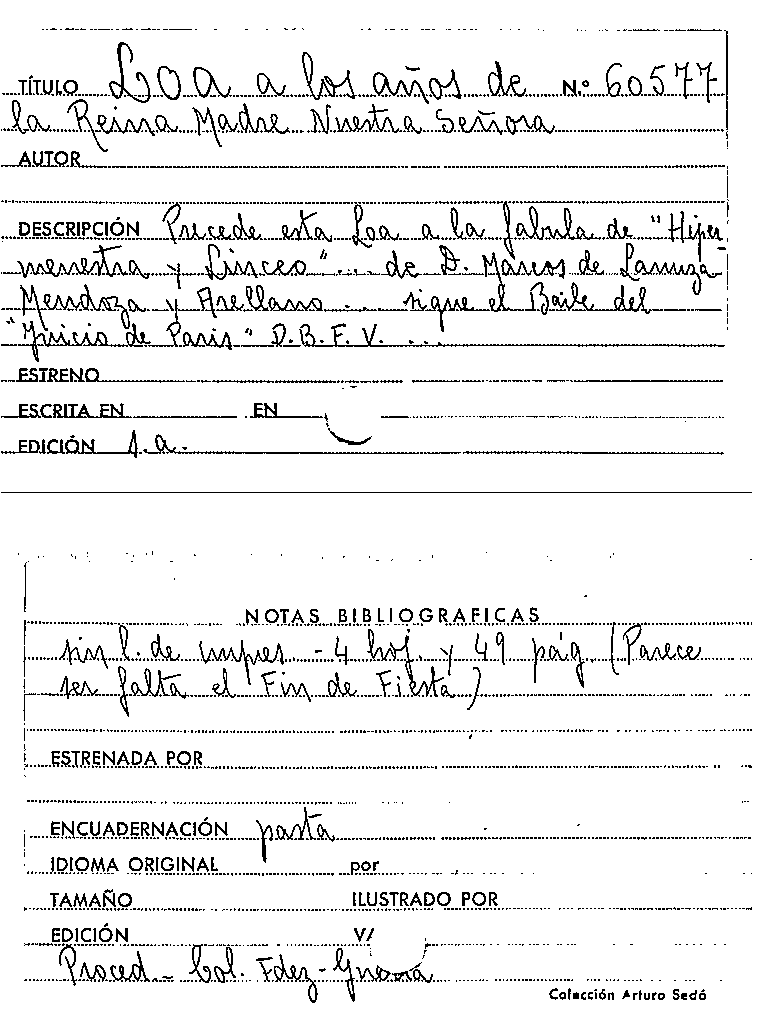 TÍTULO Loa a los años de N.º 60577
la Reina Madre Nuestra Señora
AUTOR
DESCRIPCIÓN Precede esta Loa a la fabula de "Hiper
menestra y Linceo"... de D. Marcos de Lanuza
Mendoza y Arellano ... sigue el Baile del
"Juicio de Paris" D.B.F.V. ...
ESTRENO
ESCRITA EN EN
EDICIÓN s.a.
NOTAS BIBLIOGRAFICAS
sin l. de impres. - 4 hoj. y 49 pág. (Parece
ser falta el Fin de Fiesta)
ESTRENADA POR
ENCUADERNACIÓN pasta
IDIOMA ORIGINAL por
TAMAÑO ILUSTRADO POR
EDICIÓN V/
Proced - Col. Fdez-Guerra
Colección Arturo Sedó